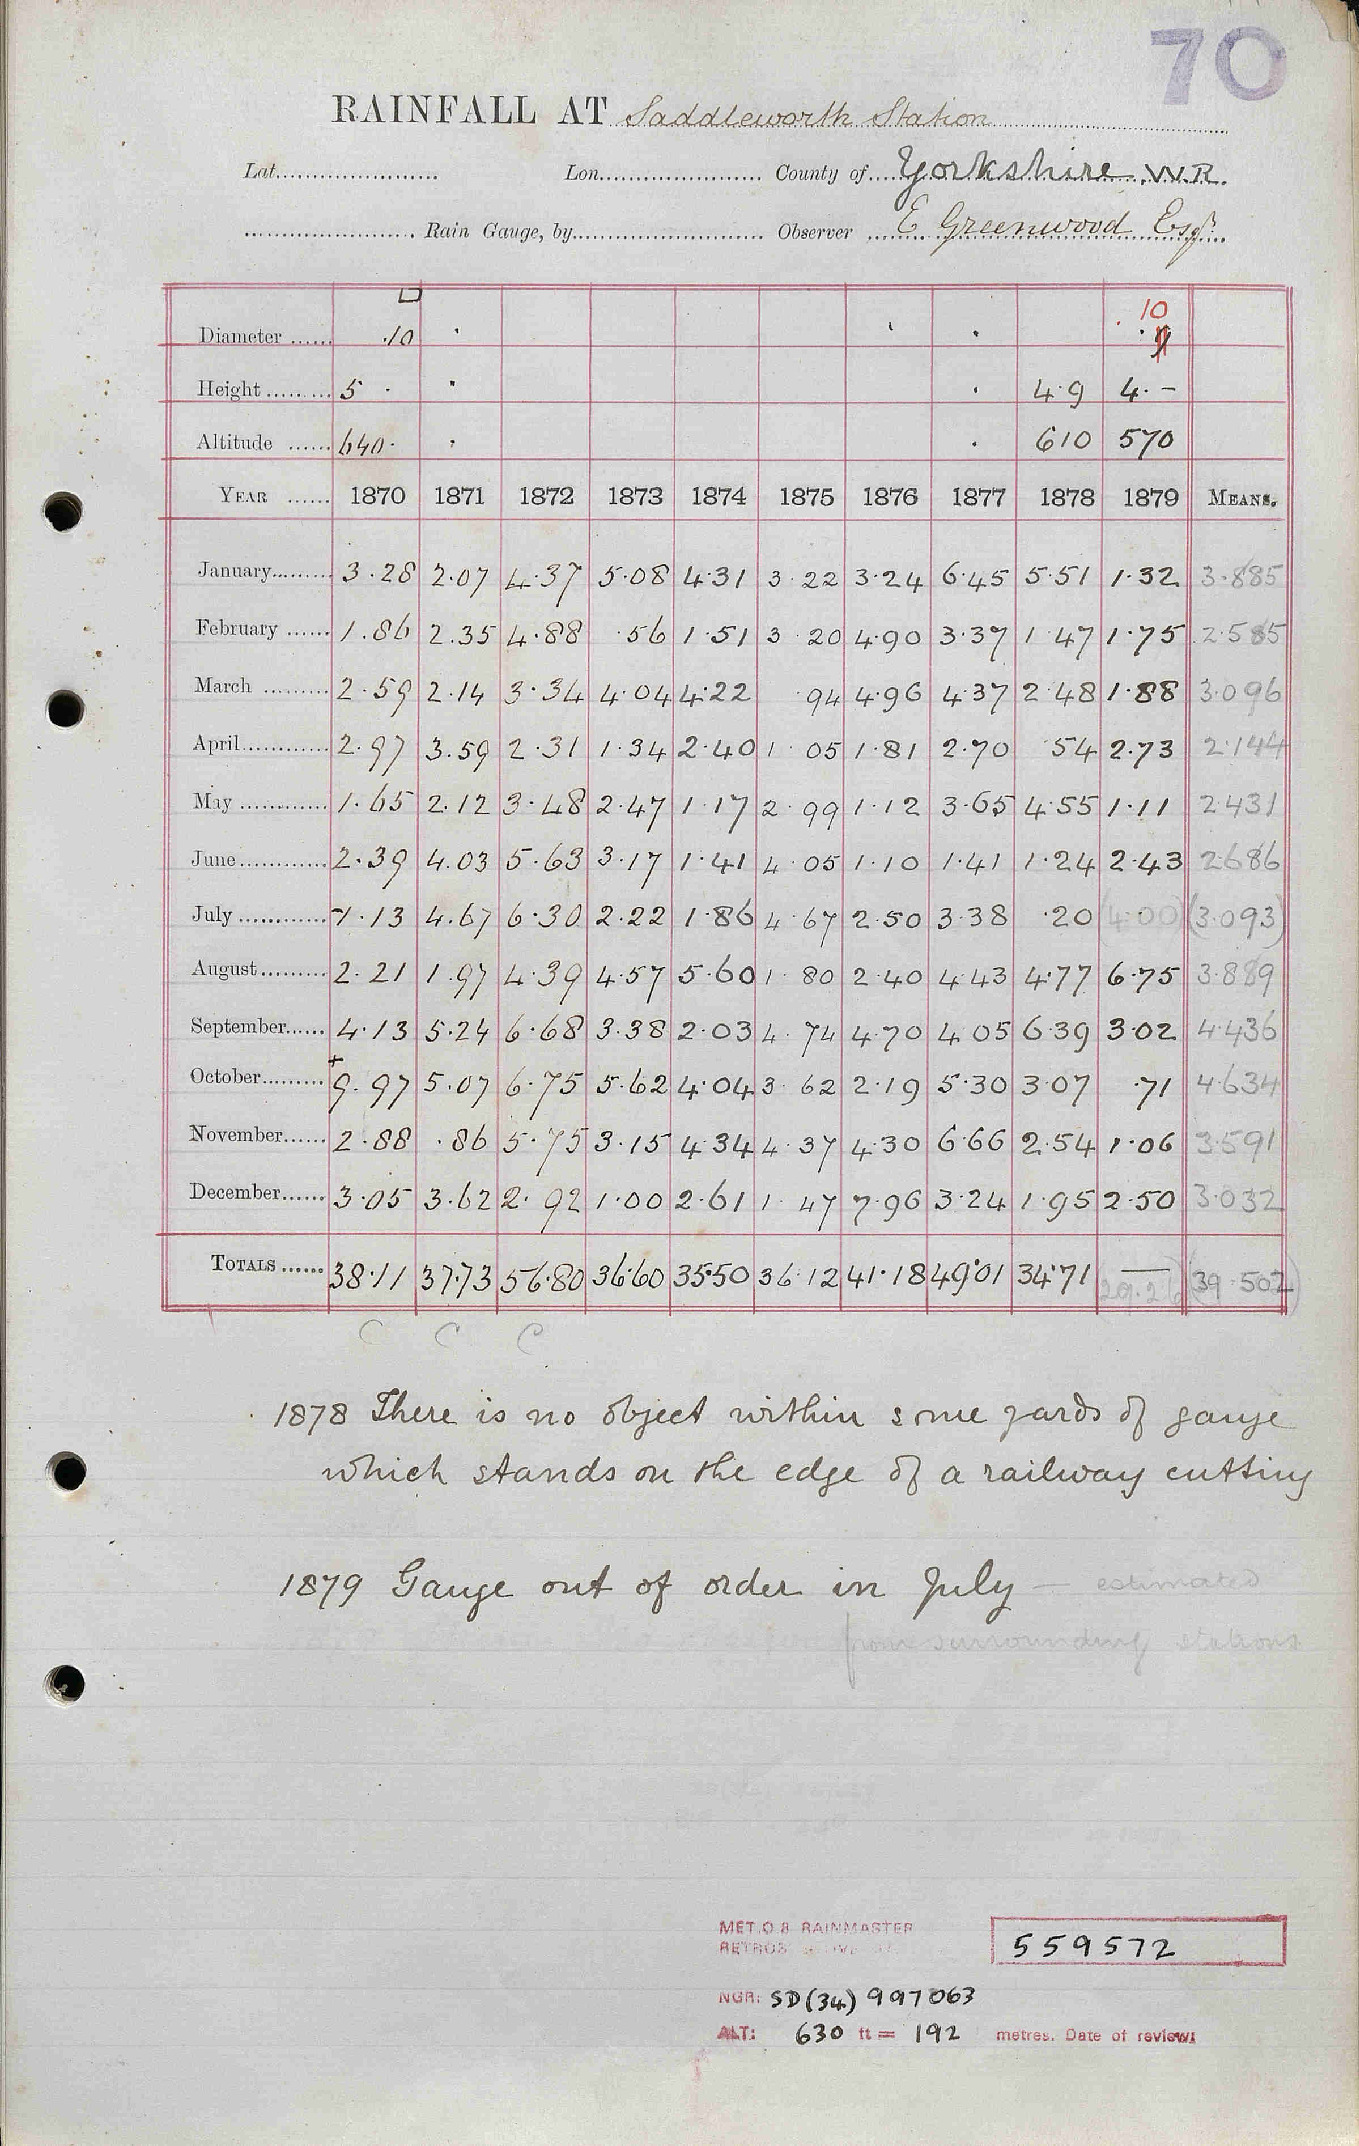 70
RAINFALL AT Saddleworth Station
Lat. Lon. County of Yorkshire W.R.
Rain Gauge, by Observer E Greenwood Esqr
10
Diameter ...... ·10
Height ......... 5 · · · 4·9 4·–
Altitude ...... 640· · · 610 570
YEAR ...... 1870 1871 1872 1873 1874 1875 1876 1877 1878 1879 MEANS.
January......... 3·28 2·07 4·37 5·08 4·31 3 22 3·24 6·45 5·51 1·32 3·885
February ...... 1·86 2·35 4·88 ·56 1·51 3 20 4·90 3·37 1·47 1·75 2·585
March ......... 2·59 2·14 3·34 4·04 4·22 ·94 4·96 4·37 2·48 1·88 3·096
April............ 2·97 3·59 2·31 1·34 2·40 1 05 1·81 2·70 ·54 2·73 2·144
May ............ 1·65 2·12 3·48 2·47 1·17 2 99 1·12 3·65 4·55 1·11 2·431
June............ 2·39 4·03 5·63 3·17 1·41 4 05 1·10 1·41 1·24 2·43 2·686
July ............ 1·13 4·67 6·30 2·22 1·86 4 67 2·50 3·38 ·20 (4·00) (3·093)
August......... 2·21 1·97 4·39 4·57 5·60 1 80 2·40 4·43 4·77 6·75 3·889
September...... 4·13 5·24 6·68 3·38 2·03 4 74 4·70 4·05 6·39 3·02 4·436
October......... +9·97 5·07 6·75 5·62 4·04 3 62 2·19 5·30 3·07 ·71 4·634
November...... 2·88 ·86 5·75 3·15 4·34 4 37 4·30 6·66 2·54 1·06 3·591
December...... 3·05 3·62 2·92 1·00 2·61 1 47 7·96 3·24 1·95 2·50 3·032
TOTALS ...... 38·11 37·73 56·80 36·60 35·50 36·12 41·18 49·01 34·71 — (29·26) (39·502)
C C C
1878 There is no object within some yards of gauge
which stands on the edge of a railway cutting
1879 Gauge out of order in July – estimated
from surrounding stations
MET.O.8 RAINMASTER
559572
NGR: SD(34) 997063
ALT: 630 ft = 192 metres. Date of review: